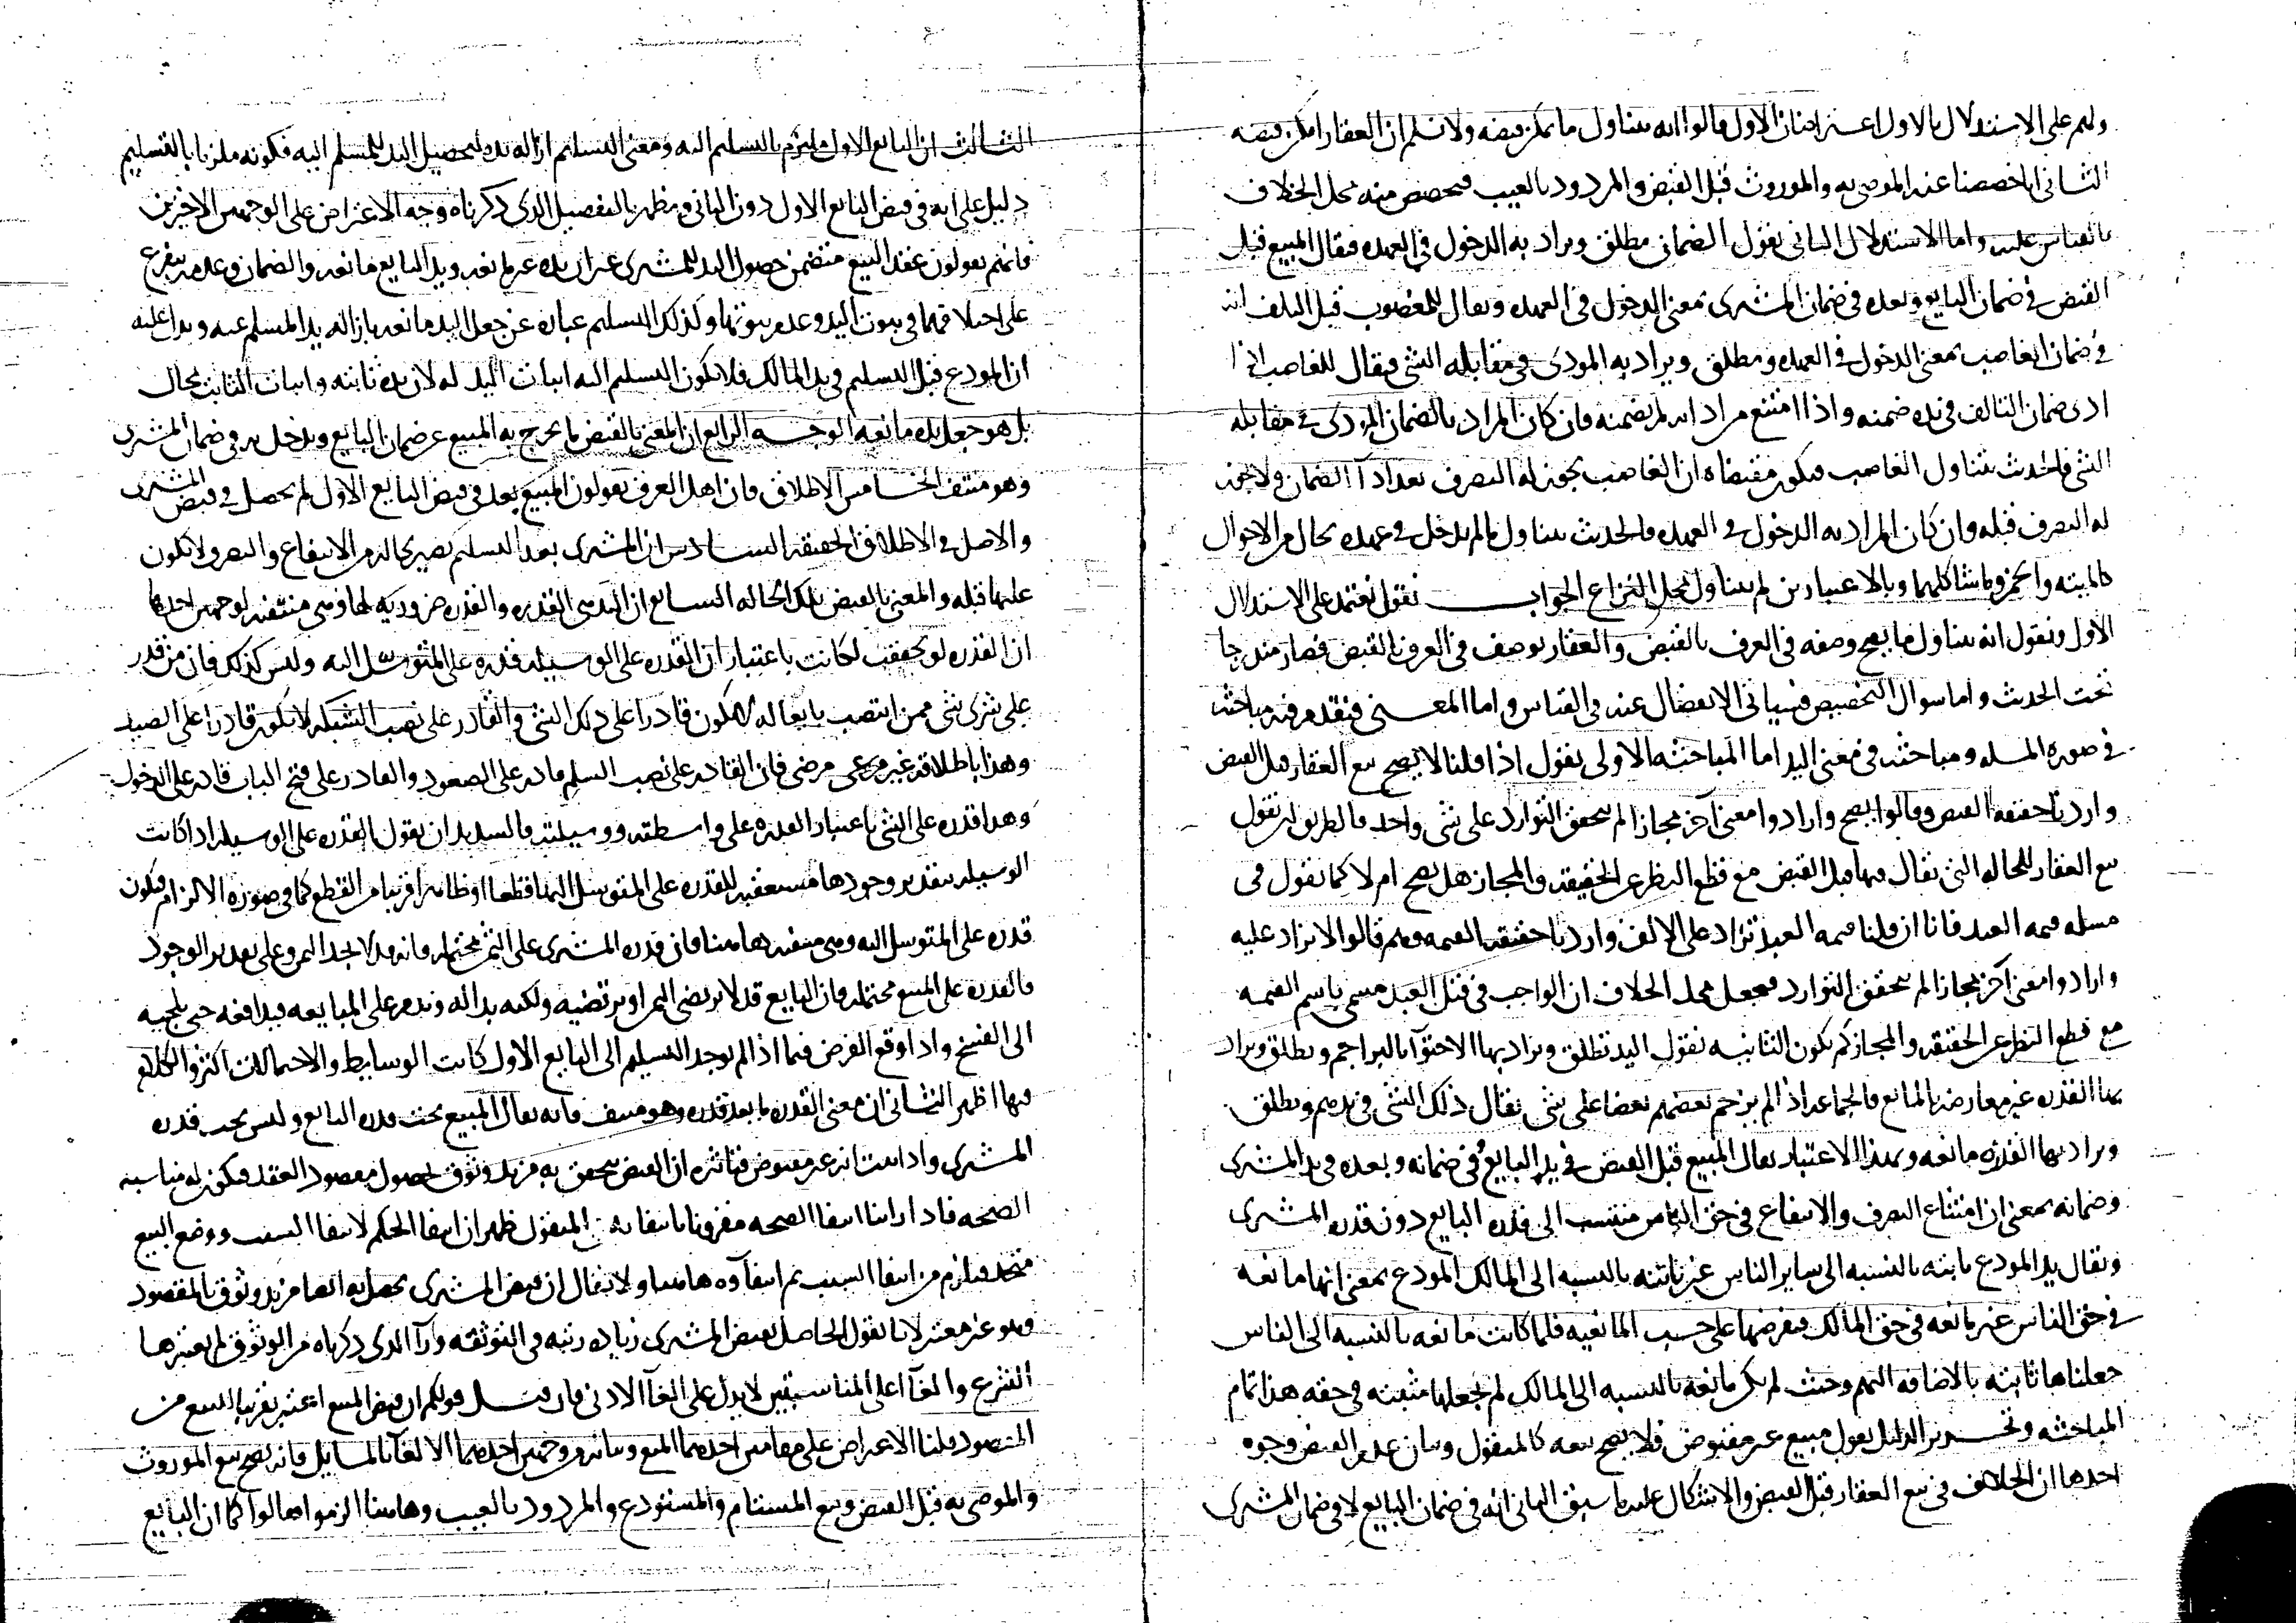 ولهم على الاستدلال بالاول اعتراضان الاول قالوا انه يتناول ما يمكن قبضه ولا نسلم ان العقار امكن قبضه
الثاني انا خصصنا عنه الموصى به والموروث قبل القبض والمردود بالعيب فنخصص منه محل الخلاف
بالقياس عليه واما الاستدلال الثاني نقول الضمان يطلق ويراد به الدخول في العهده فيقال المبيع قبل
القبض في ضمان البايع وبعده في ضمان المشتري بمعنى الدخول في العهده ويقال للمغصوب قبل التلف انه
في ضمان الغاصب بمعنى الدخول في العهده ويطلق ويراد به المودى في مقابله الشي فيقال للغاصب اذا
ادى ضمان التالف في يده ضمنه واذا امتنع من ادايه لم يضمنه فان كان المراد بالضمان المودى في مقابله
الشي فالحديث يتناول الغاصب فيكون مقتضاه ان الغاصب يجوز له التصرف بعد اداء الضمان ولا يجوز
له التصرف قبله وان كان المراد به الدخول في العهده فالحديث يتناول ما لم يدخل في عهده بحال من الاحوال
كالميته والخمر وما شاكلهما وبالاعتبارين لم يتناول محل النزاع الجواب نقول نعتمد على الاستدلال
الاول ونقول انه يتناول ما يصح وصفه في العرف بالقبض والعقار يوصف في العرف بالقبض فصار مندرجا
تحت الحديث واما سوال التخصيص فسياتي الانفصال عنه في القياس واما المعنى فنقدم فيه مباحثه
في صوره المسله ومباحثه في معنى اليد اما المباحثه الاولى نقول اذا قلنا لا يصح بيع العقار قبل القبض
واردنا حقيقه القبض وقالوا يصح وارادوا معنى آخر مجازا لم يتحقق التوارد على شي واحد فالطريق ان نقول
بيع العقار للحاله التي يقال فيها قبل القبض مع قطع النظر عن الحقيقه والمجاز هل يصح ام لا كما نقول في
مسله قيمه العبد فانا ان قلنا قيمه العبد تزاد على الالف واردنا حقيقه القيمه وهم قالوا لا يزاد عليه
وارادوا معنى آخر مجازا لم يتحقق التوارد فيجعل محل الخلاف ان الواجب في قتل العبد مسمى باسم القيمه
مع قطع النظر عن الحقيقه والمجاز كم يكون الثانيه نقول اليد تطلق ويراد بها الاحتواء بالبراجم ويطلق ويراد
بها القدره غير معارضه بالمانع فالجماعه اذا لم يزحم بعضهم بعضا على شي يقال ذلك الشي في يدهم ويطلق
ويراد بها القدره مانعه وبهذا الاعتبار يقال المبيع قبل القبض في يد البايع وفي ضمانه وبعده في يد المشتري
وضمانه بمعنى ان امتناع التصرف والانتفاع في حق الناس منتسب الى قدره البايع دون قدره المشتري
ويقال يد المودع ثابته بالنسبه الى ساير الناس غير ثابته بالنسبه الى المالك المودع بمعنى انها مانعه
في حق الناس غير مانعه في حق المالك فيفرضها على حسب المانعيه فلما كانت مانعه بالنسبه الى الناس
جعلناها ثابته بالاضافه اليهم وحيث لم يكن مانعه بالنسبه الى المالك لم نجعلها مثبته في حقه هذا تمام
المباحثه وتحرير الدليل نقول مبيع غير مقبوض فلا يصح بيعه كالمنقول وبيان عدم القبض وجوه
احدها ان الخلاف في بيع العقار قبل القبض والاشكال عليه ما سبق الثاني انه في ضمان البايع لا في ضمان المشتري
الثالث ان البايع الاول ملتزم بالتسليم اليه ومعنى التسليم ازاله يده لتحصيل اليد للمسلم اليه فكونه ملزما بالتسليم
دليل على انه في قبض البايع الاول دون الثاني ويظهر بالتفصيل الذي ذكرناه وجه الاعتراض على الوجهين الاخيرين
فانهم يقولون عقد البيع متضمن حصول اليد للمشتري غير ان يده غير مانعه ويد البايع مانعه والضمان وعدمه يتفرع
على اختلافهما في ثبوت اليد وعدم ثبوتها وكذلك التسليم عباره عن جعل اليد مانعه بازاله يد المسلم عنه ويدل عليه
ان المودع قبل التسليم في يد المالك فلا يكون التسليم اليه اثبات اليد له لان يده ثابته واثبات الثابت محال
بل هو جعل يده مانعه الوجه الرابع ان المعنى بالقبض ما يخرج به المبيع عن ضمان البايع ويدخل به في ضمان المشتري
وهو منتف الخامس الاطلاق فان اهل العرف يقولون المبيع بعد في قبض البايع الاول لم يحصل في قبض المشتري
والاصل في الاطلاق الحقيقه السادس ان المشتري بعد التسليم يصير بحاله من الانتفاع والتصرف لا يكون
عليها قبله والمعنى بالقبض تلك الحاله السابع ان اليد هي القدره والقدره ضروريه لها وهي منتفيه لوجهين احدهما
ان القدره لو تحققت لكانت باعتبار ان القدره على الوسيله قدره على المتوسل اليه وليس كذلك فان من قدر
على شرى شي ممن انتصب بايعا له لا يكون قادرا على ذلك الشي والقادر على نصب الشبكه لا يكون قادرا على الصيد
وهذا باطلاقه غير مرضي فان القادر على نصب السلم قادر على الصعود والقادر على فتح الباب قادر على الدخول
وهذا قدره على الشي باعتبار القدره على واسطته ووسيلته فالسديد ان نقول القدره على الوسيله اذا كانت
الوسيله بتقدير وجودها مستعقبه للقدره على المتوسل اليها قطعا او ظاهرا قريبا من القطع كما في صوره الالزام فيكون
قدره على المتوسل اليه وهي منتفيه هاهنا فان قدره المشتري على الثمن محتمله فانه قد لا يجد الثمن وعلى تقدير الوجود
فالقدره على المبيع محتمله فان البايع قد لا يرتضي الثمن او يرتضيه ولكنه بدا له وندم على المبايعه فيدافعه حتى يلجيه
الى الفسخ واذا وقع الفرض فيما اذا لم يوجد التسليم الى البايع الاول كانت الوسايط والاحتمالات اكثر والكلام
فيها اظهر الثاني ان معنى القدره ما يعد قدره وهو منتف فانه يقال المبيع تحت قدره البايع وليس تحت قدره
المشتري واذا ثبت انه غير مقبوض فتاثيره ان القبض يتحقق به مزيد وثوق لحصول مقصود العقد فيكون له مناسبه
الصحه فاذا راينا انتفا الصحه مقرونا بانتفائه في المنقول ظهر ان انتفا الحكم لانتفا السبب ووضع البيع
متحد فيلزم من انتفا السبب ثم انتفاؤه هاهنا ولا يقال ان قبض المشتري يحصل به ايضا مزيد وثوق بالمقصود
وهو غير معتبر لانا نقول الحاصل بقبض المشتري زياده رتبه في التوثقه ورآ الذي ذكرناه من الوثوق لم يعتبرها
الشرع والغآ اعلى المناسبتين لا يدل على الغآ الادنى فان قيل قولكم ان قبض المبيع يعتبر تقريبا للبيع من
المقصود قلنا الاعتراض على مقامين احدهما المنع وبيانه من وجهين احدهما الالغآ بالمسايل فانه يصح بيع الموروث
والموصى به قبل القبض وبيع المستام والمستودع والمردود بالعيب وهاهنا الزموا فقالوا كما ان البايع